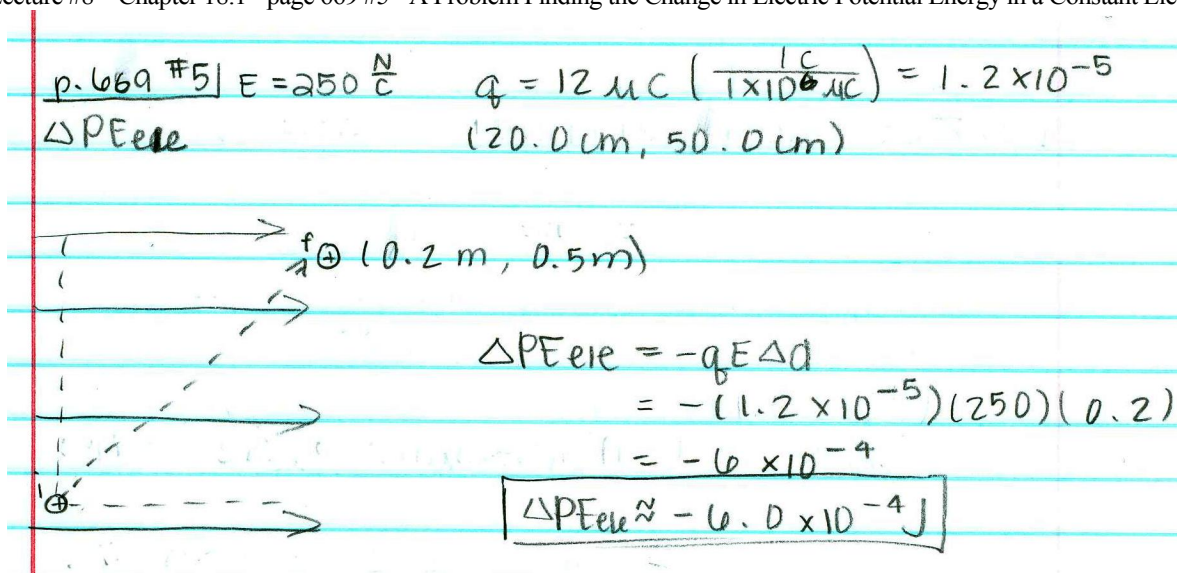 Lecture #8 - Chapter 18.1 - page 669 #5 - A Problem Finding the Change in Electric Potential Energy in a Constant Elec
p. 669 #5| E = 250 N/C q = 12 μC ( 1C / 1×10⁶ μC ) = 1.2 ×10⁻⁵
ΔPEele (20.0 cm, 50.0 cm)
f ⊕ (0.2 m, 0.5m)
ΔPEele = -qEΔd
= -(1.2 ×10⁻⁵)(250)(0.2)
= -6 ×10⁻⁴
i ⊕
ΔPEele ≈ -6.0 ×10⁻⁴ J